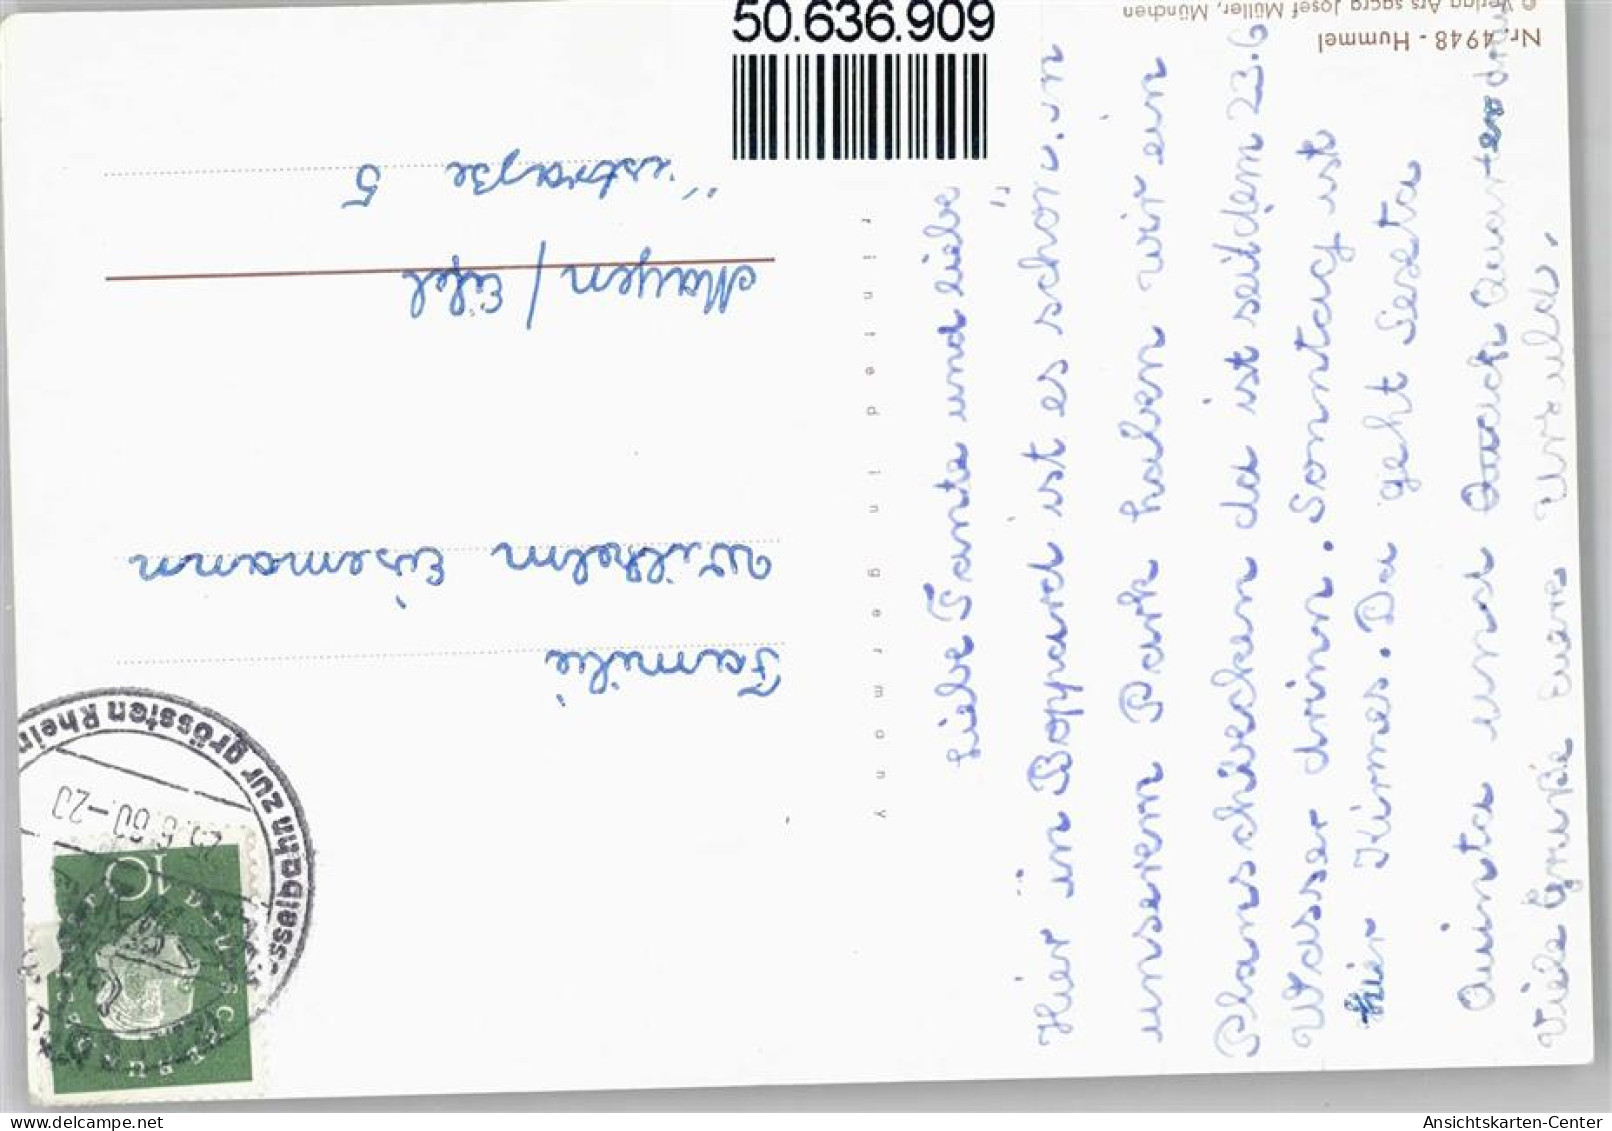 50.636.909
Nr. 4948 - Hummel
© Verlag Ars sacra Josef Müller, München
printed in germany
Liebe Tante und liebe
Hier in Boppard ist es schön. in
unserem Park haben wir ein
Planschbecken da ist seitdem 23.6
Wasser drinn. Sonntag ist
hier Kirmes. Da geht Sexta
Quinta und Quarta
Viele Grüße eure Ursula.
Familie
Wilhelm Eisemann
Mayen / Eifel
straße 5
sselbahn zur grössten Rhein
6.60.-20
10
DEUTSCHE BUNDESPOST
Ansichtskarten-Center